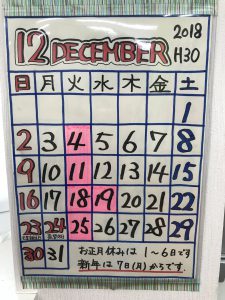 12 DECEMBER 2018 H30
日 月 火 水 木 金 土
1
2 3 4 5 6 7 8
9 10 11 12 13 14 15
16 17 18 19 20 21 22
23 24 25 26 27 28 29
30 31
お正月休みは 1〜6日です
新年は 7日(月)からです.